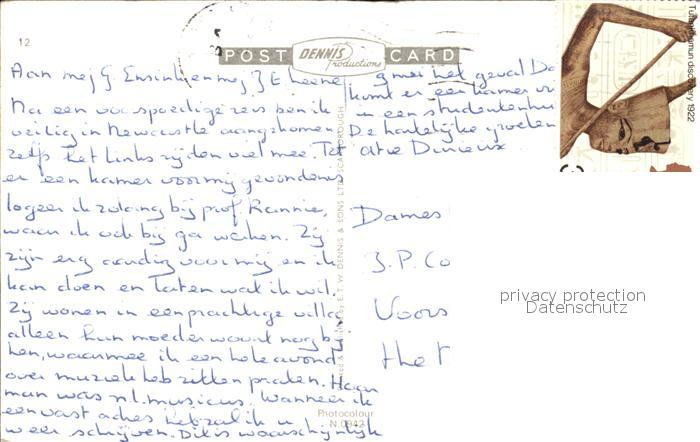 12
POST DENNIS Productions CARD
Tutankhamun discovery 1922
Aan mej G. Ensink en mej J E
Na een voorspoedige reis ben ik
veilig in Newcastle aangekomen
zelfs het links rijden viel mee. Tot
er een kamer voor mij gevonden is
logeer ik zolang bij prof. Rannie,
waar ik ook bij ga werken. Zij
zijn erg aardig voor mij en ik
kan doen en laten wat ik wil.
Zij wonen in een prachtige villa
alleen hun moeder woont nog bij
hen, waarmee ik een hele avond
over muziek heb zitten praten. Haar
man was n.l. musicus. Wanneer ik
een vast adres heb zal ik u
weer schrijven. Dit is waarschijnlijk
9 mei het geval Da
komt er een kamer vri
in een studentenhui
De hartelijke groeten
Dames
J. P. Co
Voors
the
privacy protection
Datenschutz
E.T.W. DENNIS & SONS LTD. SCARBOROUGH
Photocolour
N.0942